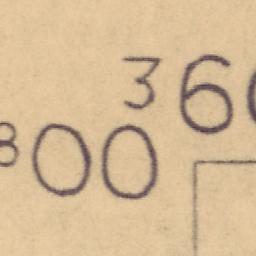 ³60
⁸00